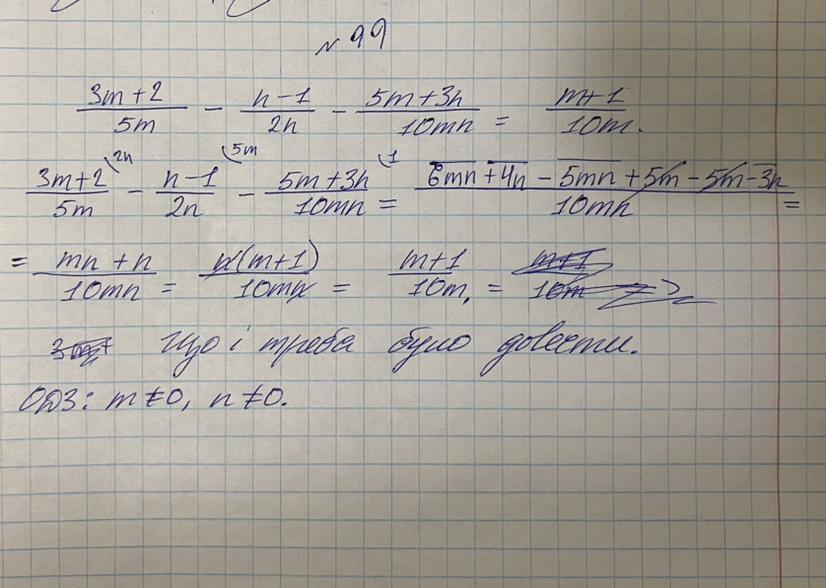 № 99
(3m+2)/(5m) − (n−1)/(2n) − (5m+3n)/(10mn) = (m+1)/(10m).
(3m+2)/(5m) \2n − (n−1)/(2n) \5m − (5m+3n)/(10mn) \1 = (6mn+4n−5mn+5m−5m−3n)/(10mn) =
= (mn+n)/(10mn) = (n(m+1))/(10mn) = (m+1)/(10m), =
Що і треба було довести.
ОДЗ: m≠0, n≠0.